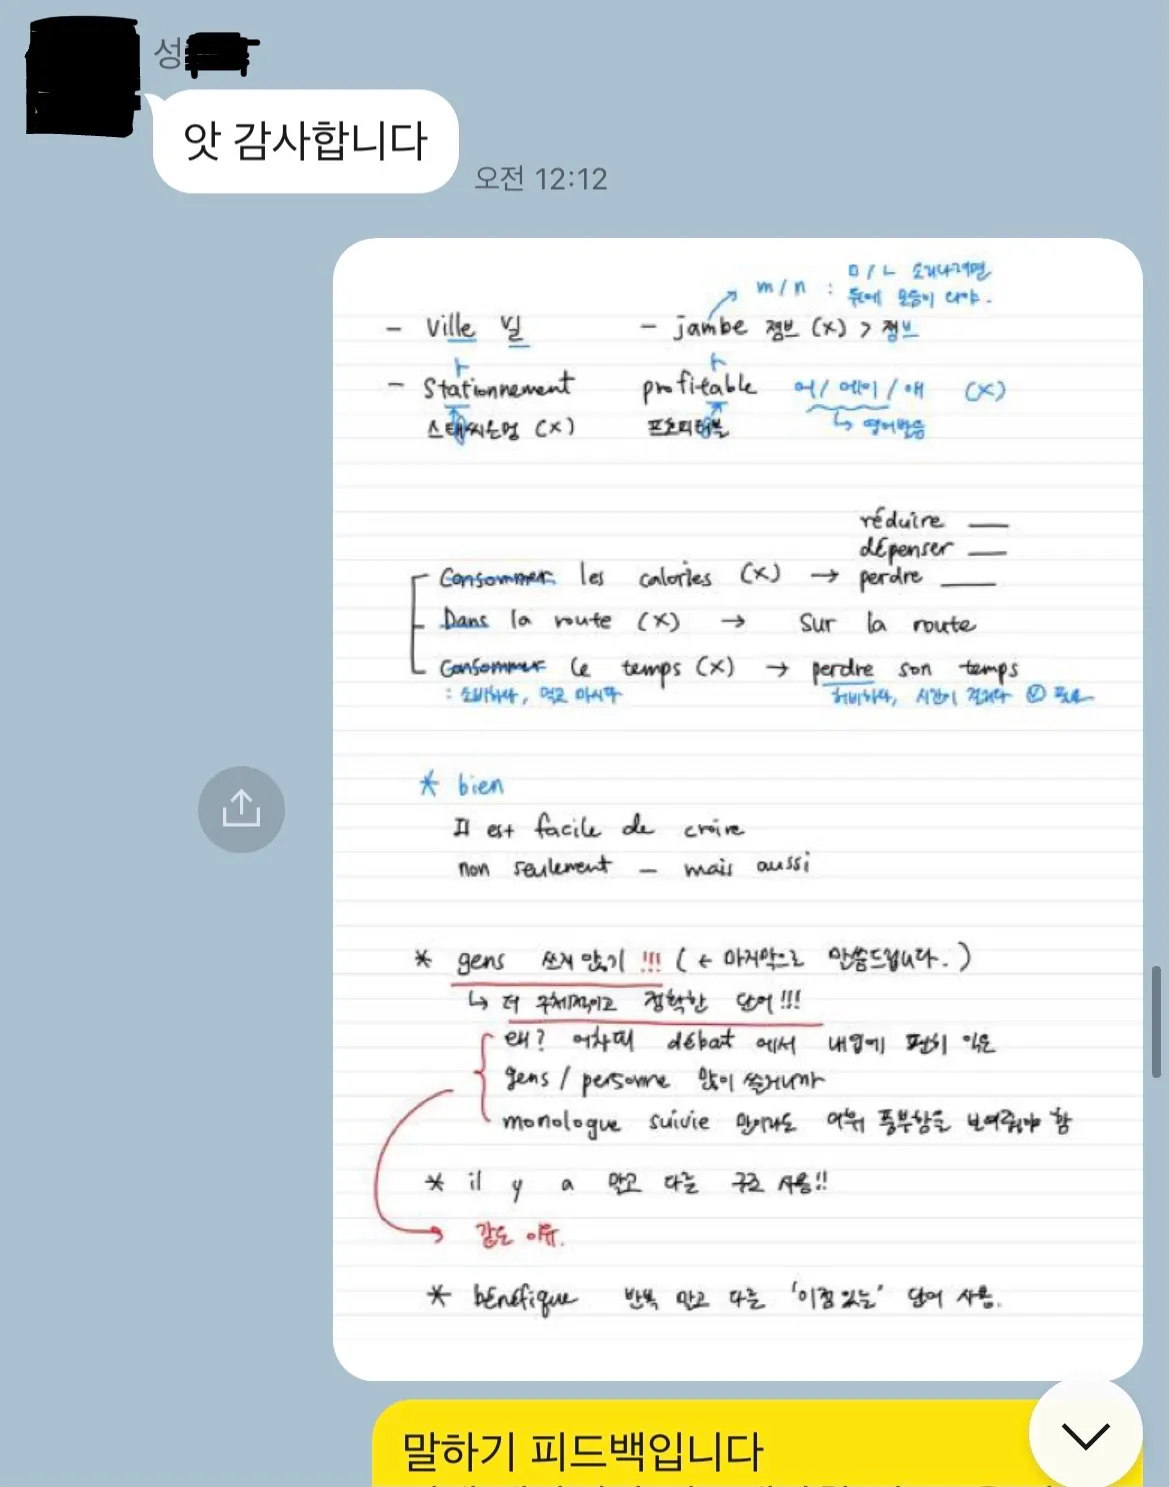 성
앗 감사합니다
오전 12:12
m/n : ㅁ/ㄴ 소리나려면
뒤에 모음이 와야.
- Ville 빌
- jambe 졈브 (x) > 쟝브
ㅏ ㅏ
- Stationnement profitable 어/에이/애 (x)
스태씨은멍 (x) 프호피터블 ↳ 영어발음
réduire ___
dépenser ___
Consommer les calories (x) → perdre ___
Dans la route (x) → Sur la route
Consommer le temps (x) → perdre son temps
: 소비하다, 먹고 마시다 허비하다, 시간이
* bien
Il est facile de croire
non seulement - mais aussi
* gens 쓰지 않기 !!! (← 마지막으로 말씀드립니다.)
↳ 더 구체적이고 정확한 단어!!!
왜? 어차피 débat 에서 내 입에 편히 익은
gens / personne 많이 쓸거니까
monologue suivie 만이라도 어휘 풍부함을 보여줘야 함
* il y a 말고 다른 구조 사용!!
같은 이유.
* bénéfique 반복 말고 다른 '이점있는' 단어 사용.
말하기 피드백입니다